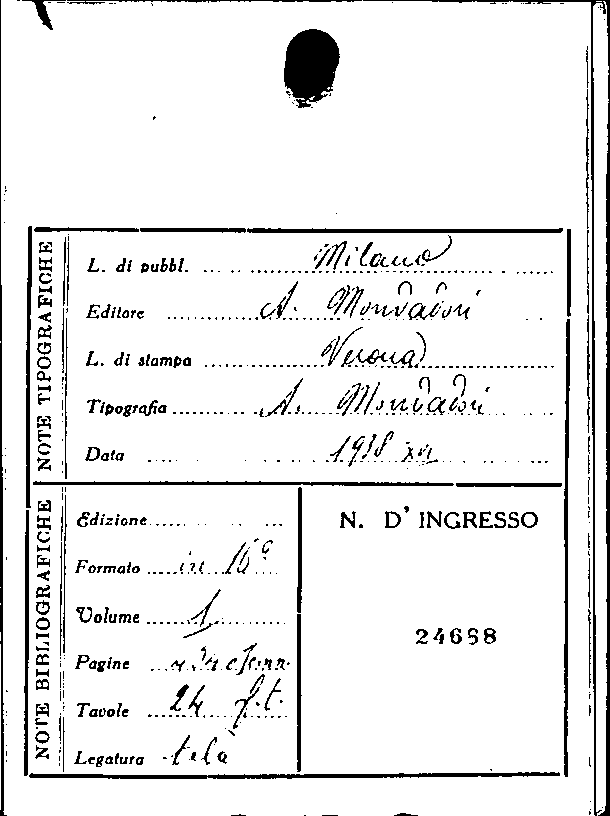 NOTE TIPOGRAFICHE
L. di pubbl. Milano
Editore A. Mondadori
L. di stampa Verona
Tipografia A. Mondadori
Data 1938 XVI
NOTE BIBLIOGRAFICHE
Edizione
Formato in 16º
Volume 1
Pagine
Tavole 24 f.t.
Legatura tela
N. D'INGRESSO
24698